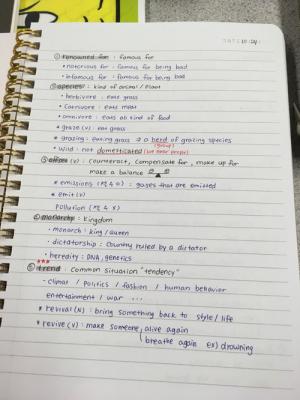 DATE
① renowned for : famous for
• notorious for : famous for being bad
• infamous for : famous for being bad
② species : kind of animal / plant
• herbivore : eats grass
• Carnivore : eats meat
• omnivore : eats all kind of food
* graze (v) : eat grass
* grazing : eating grass → a herd of grazing species
(group)
• wild : not domesticated (live near people)
③ offset (v) : counteract, compensate for, make up for
make a balance
* emissions : gases that are emitted
* emit (v)
pollution
④ monarchy : kingdom
• monarch : king / queen
• dictatorship : country ruled by a dictator
• heredity : DNA, genetics
⑤ trend : common situation "tendency"
- climar / politics / fashion / human behavior
entertainment / war ...
* revival (N) : bring something back to style / life
* revive (v) : make someone alive again
breathe again ex) drowning